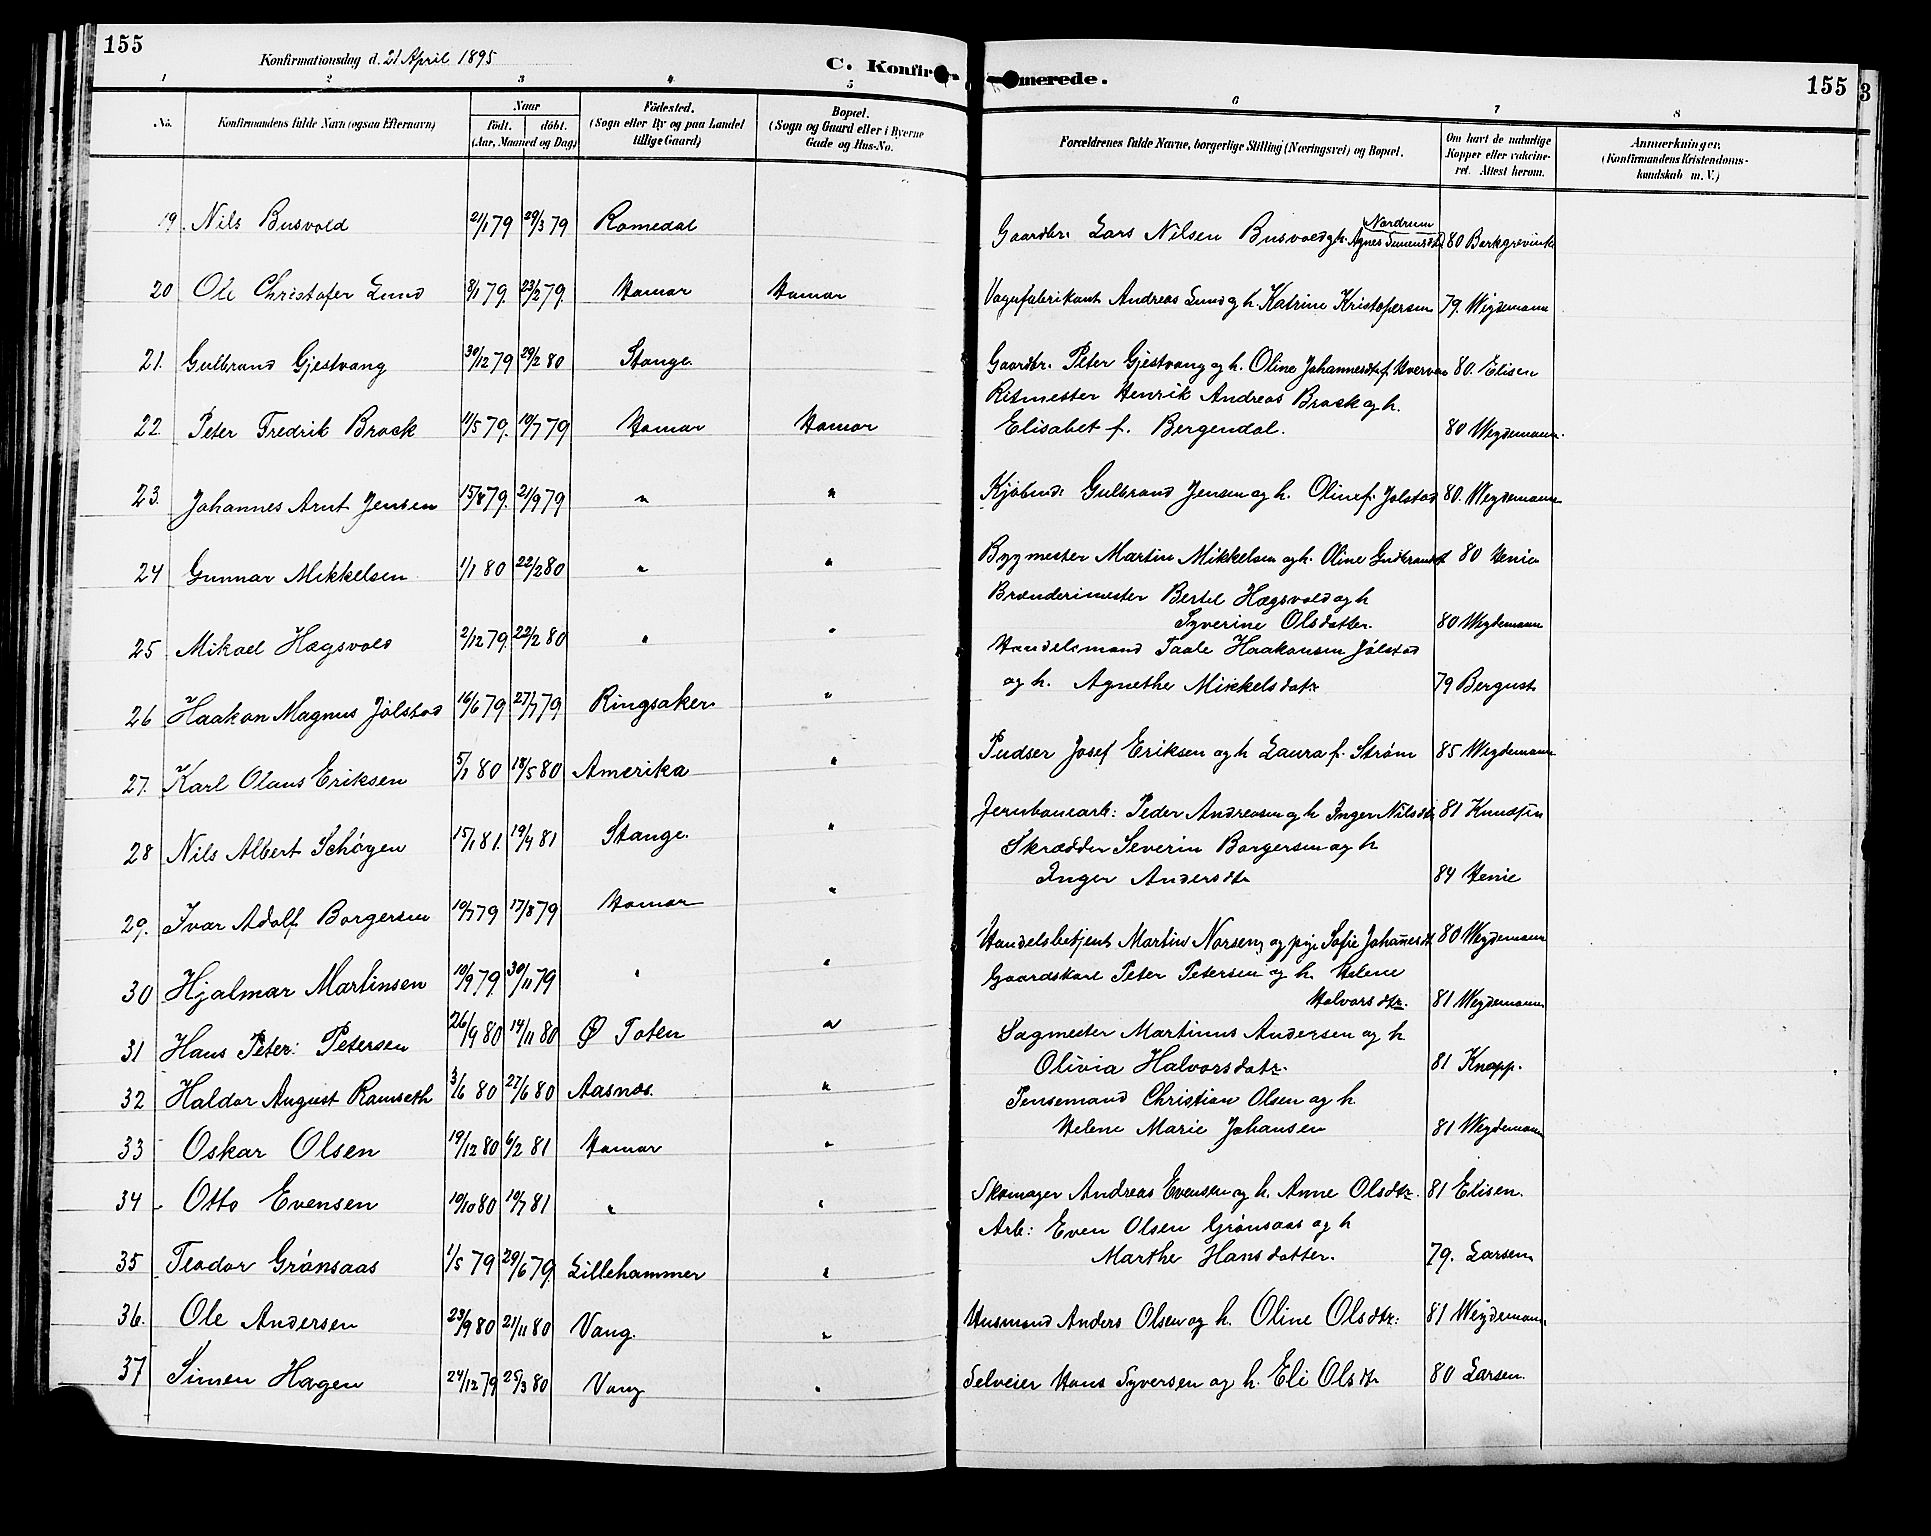 155
Konfirmationsdag d. 21 April 1895
C. Konfir merede.
155
3
1 2 3 4 5 6 7 8
No. Konfirmandens fulde Navn (ogsaa Efternavn)
Naar
født. døbt.
(Aar, Maaned og Dag)
Födested.
(Sogn eller By og paa Landet
tillige Gaard)
Bopæl.
(Sogn og Gaard eller i Byerne
Gade og Hus-No.
Forældrenes fulde Navne, borgerlige Stilling (Næringsvei) og Bopæl.
Om havt de naturlige
Kopper eller vakcine-
ret. Attest herom.
Anmærkninger.
(Konfirmandens Kristendoms-
kundskab m. V.)
19. Nils Busvold 21/1 79 29/3 79 Romedal Gaardbr: Lars Nilsen Busvold og h. Agnes Simensdt Nordrum 80 Berkgrevink
20 Ole Christofer Lund 8/1 79. 23/2 79. Hamar Hamar Vognfabrikant Andreas Lund og h. Katrine Kristofersen 79. Weydemann
21. Gulbrand Gjestvang 30/12 79 29/2 80 Stange. Gaardbr. Peter Gjestvang og h. Oline Johannesdt f. 80. Elisen
22. Peter Fredrik Brock 11/5 79. 19/7 79 Hamar Hamar Ritmester Henrik Andreas Brock og h.
Elisabet f. Bergendal. 80 Weydemann.
23. Johannes Arnt Jensen 15/8 79. 21/9 79 " " Kjøbmd: Gulbrand Jensen og h. Oline f. Jølstad 80. Weydemann
24 Gunnar Mikkelsen 1/1 80 22/2 80 " " Bygmester Martin Mikkelsen og h. Oline Gudbrandsd 80 Henie
25 Mikael Hægsvold 2/12 79. 22/2 80 " " Brænderimester Bertel Hægsvold og h
Syverine Olsdatter. 80 Weydemann
26 Haakon Magnus Jølstad 16/6 79 27/7 79 Ringsaker. " Handelsmand Taale Haakonsen Jølstad
og h. Agnethe Mikkelsdatr 79 Bergust
27. Karl Olaus Eriksen 5/1 80 18/5 80 Amerika " Pudser Josef Eriksen og h Laura f. Strøm 85 Weydemann
28 Nils Albert Schøyen 15/1 81. 19/4 81 Stange. " Jernbanearb: Peder Andreasen og h Inger Nilsdtr 81 Knudsen
29. Ivar Adolf Borgersen 10/7 79 17/8 79 Hamar " Skrædder Severin Borgersen og h
Inger Andersdtr 84 Henie
30 Hjalmar Martinsen 10/9 79. 30/11 79 " " Handelsbetjent Martin Norseng og pige Sofie Johannesdt. 80 Weydemann
31 Hans Peter: Petersen 26/9 80 14/11 80 Ø Toten " Gaardskarl Peter Petersen og h. Helene
Halvorsdtr. 81 Weydemann
32 Haldor August Ramseth 3/6 80 27/6 80 Aasnes. " Sagmester Martinus Andersen og h
Olivia Halvorsdatr. 81 Knapp.
33 Oskar Olsen 19/12 80 6/2 81 Hamar " Pensemand Christian Olsen og h
Helene Marie Johansen 81 Weydemann
34 Otto Evensen 10/10 80 10/7 81 " " Skomager Andreas Evensen og h. Anne Olsdtr. 81 Elisen.
35 Teodor Grønsaas 1/5 79 29/6 79. Lillehammer " Arb: Even Olsen Grønsaas og h
Marthe Hansdatter. 79. Larsen
36. Ole Andersen 23/9 80 21/11 80 Vang. " Husmand Anders Olsen og h. Oline Olsdtr: 81 Weydemann.
37 Simen Hagen 24/12 79 25/3 80 Vang " Selveier Hans Syversen og h. Eli Olsdtr 80 Larsen.